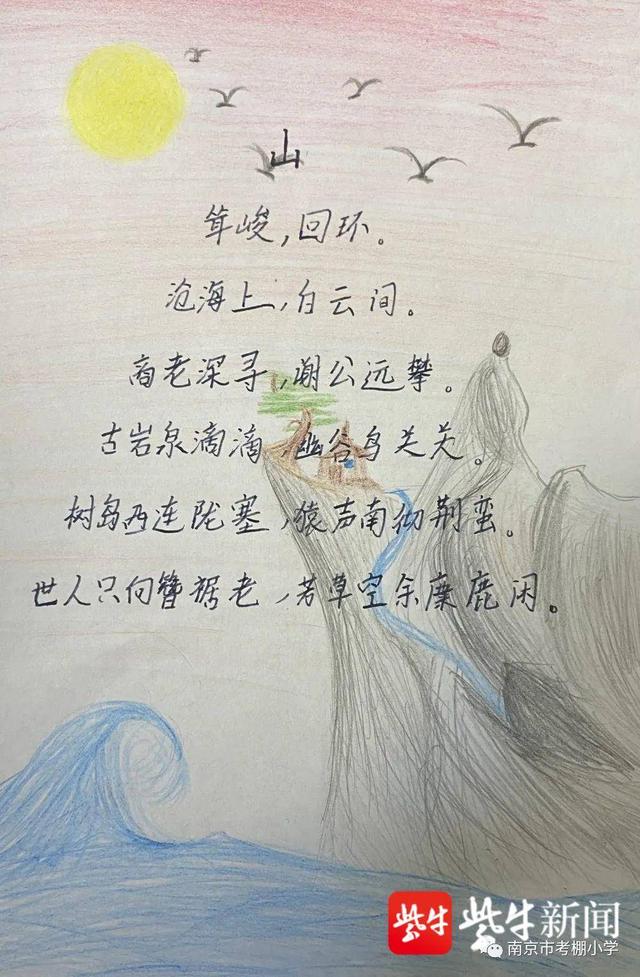 山
耸峻,回环。
沧海上,白云间。
商老深寻,谢公远攀。
古岩泉滴滴,幽谷鸟关关。
树岛西连陇塞,猿声南彻荆蛮。
世人只向簪裾老,芳草空余麋鹿闲。
紫牛 紫牛新闻
南京市考棚小学